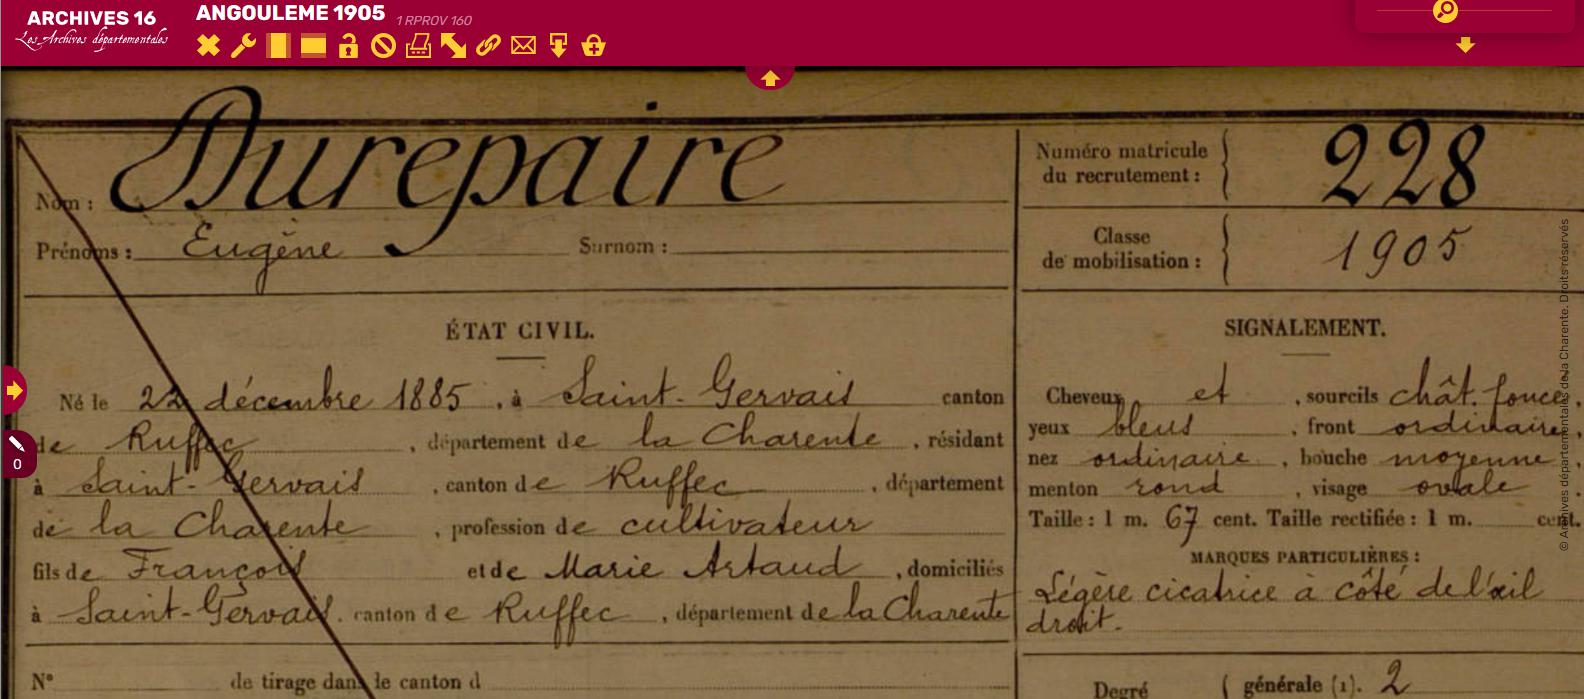 ARCHIVES 16
Les Archives départementales
ANGOULEME 1905 1 RPROV 160
0
Nom : Durepaire
Prénoms : Eugène Surnom :
Numéro matricule
du recrutement : 228
Classe
de mobilisation : 1905
ÉTAT CIVIL.
Né le 22 décembre 1885, à Saint-Gervais canton
de Ruffec, département de la Charente, résidant
à Saint-Gervais, canton de Ruffec, département
de la Charente, profession de cultivateur
fils de François et de Marie Artaud, domiciliés
à Saint-Gervais. canton de Ruffec, département de la Charente
N° de tirage dans le canton d
SIGNALEMENT.
Cheveux et, sourcils chât. foncé,
yeux bleus, front ordinaire,
nez ordinaire, bouche moyenne,
menton rond, visage ovale.
Taille : 1 m. 67 cent. Taille rectifiée : 1 m. cent.
MARQUES PARTICULIÈRES :
Légère cicatrice à côté de l'œil
droit.
Degré { générale (1). 2
© Archives départementales de la Charente. Droits réservés